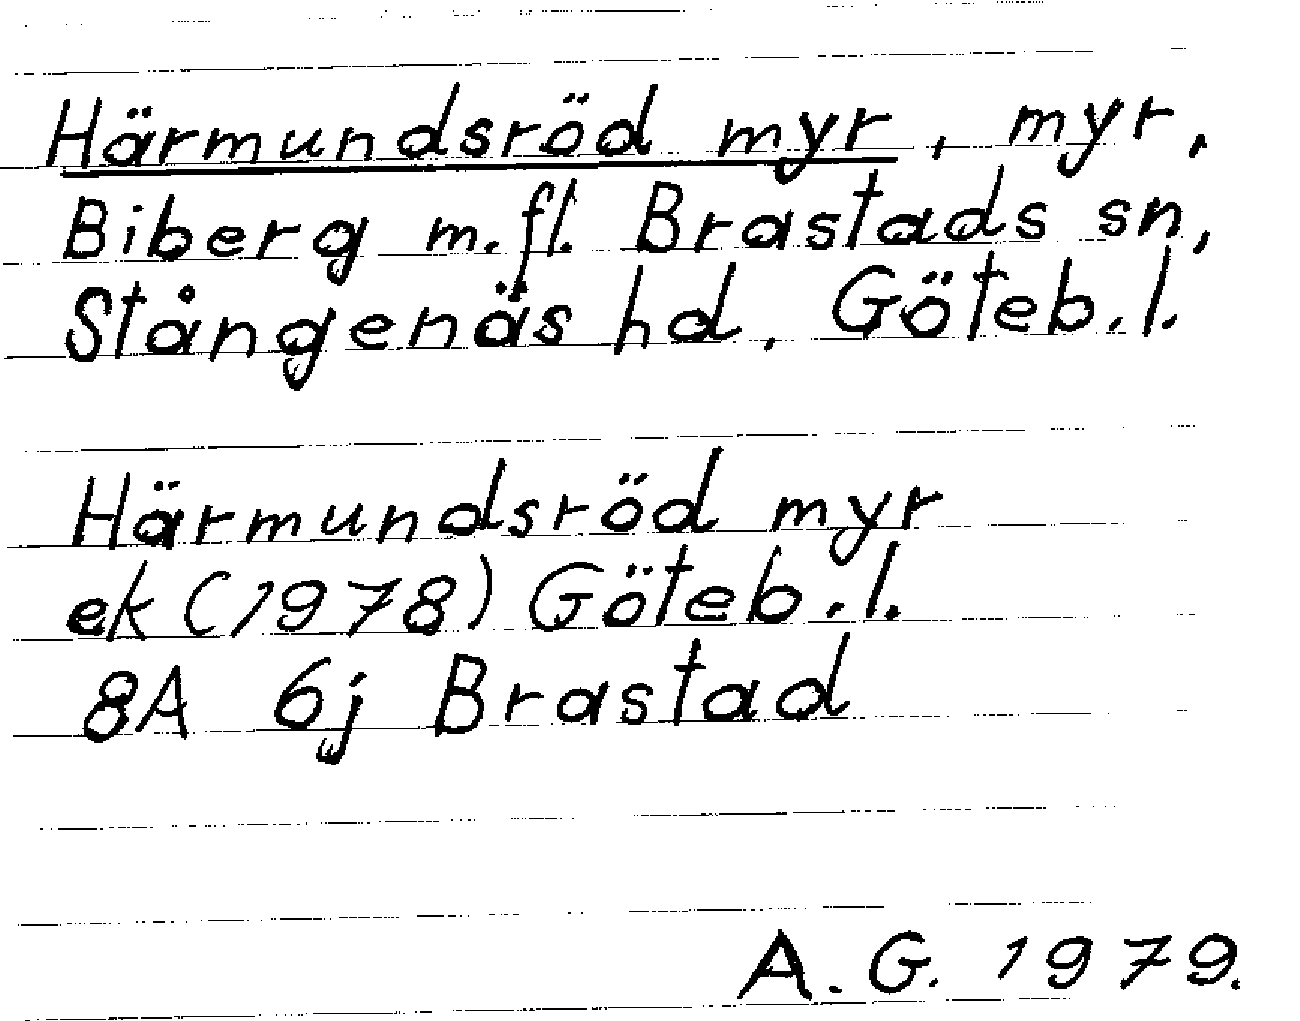 Härmundsröd myr, myr,
Biberg m.fl. Brastads sn,
Stångenäs hd, Göteb.l.
Härmundsröd myr
ek (1978) Göteb.l.
8A 6j Brastad
A.G. 1979.